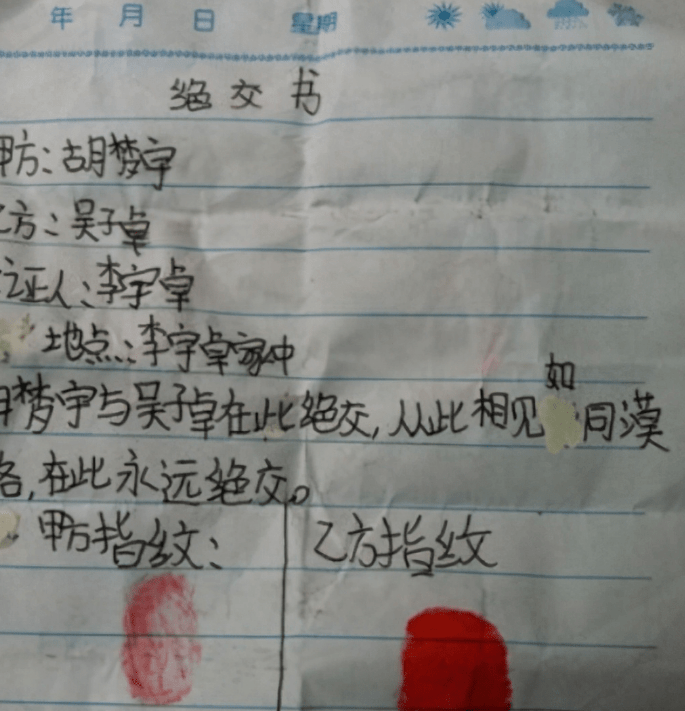 年 月 日 星期
绝交书
甲方：胡梦宇
乙方：吴子卓
证人：李宇卓
地点：李宇卓家中
胡梦宇与吴子卓在此绝交，从此相见如同漠
路，在此永远绝交。
甲方指纹： 乙方指纹